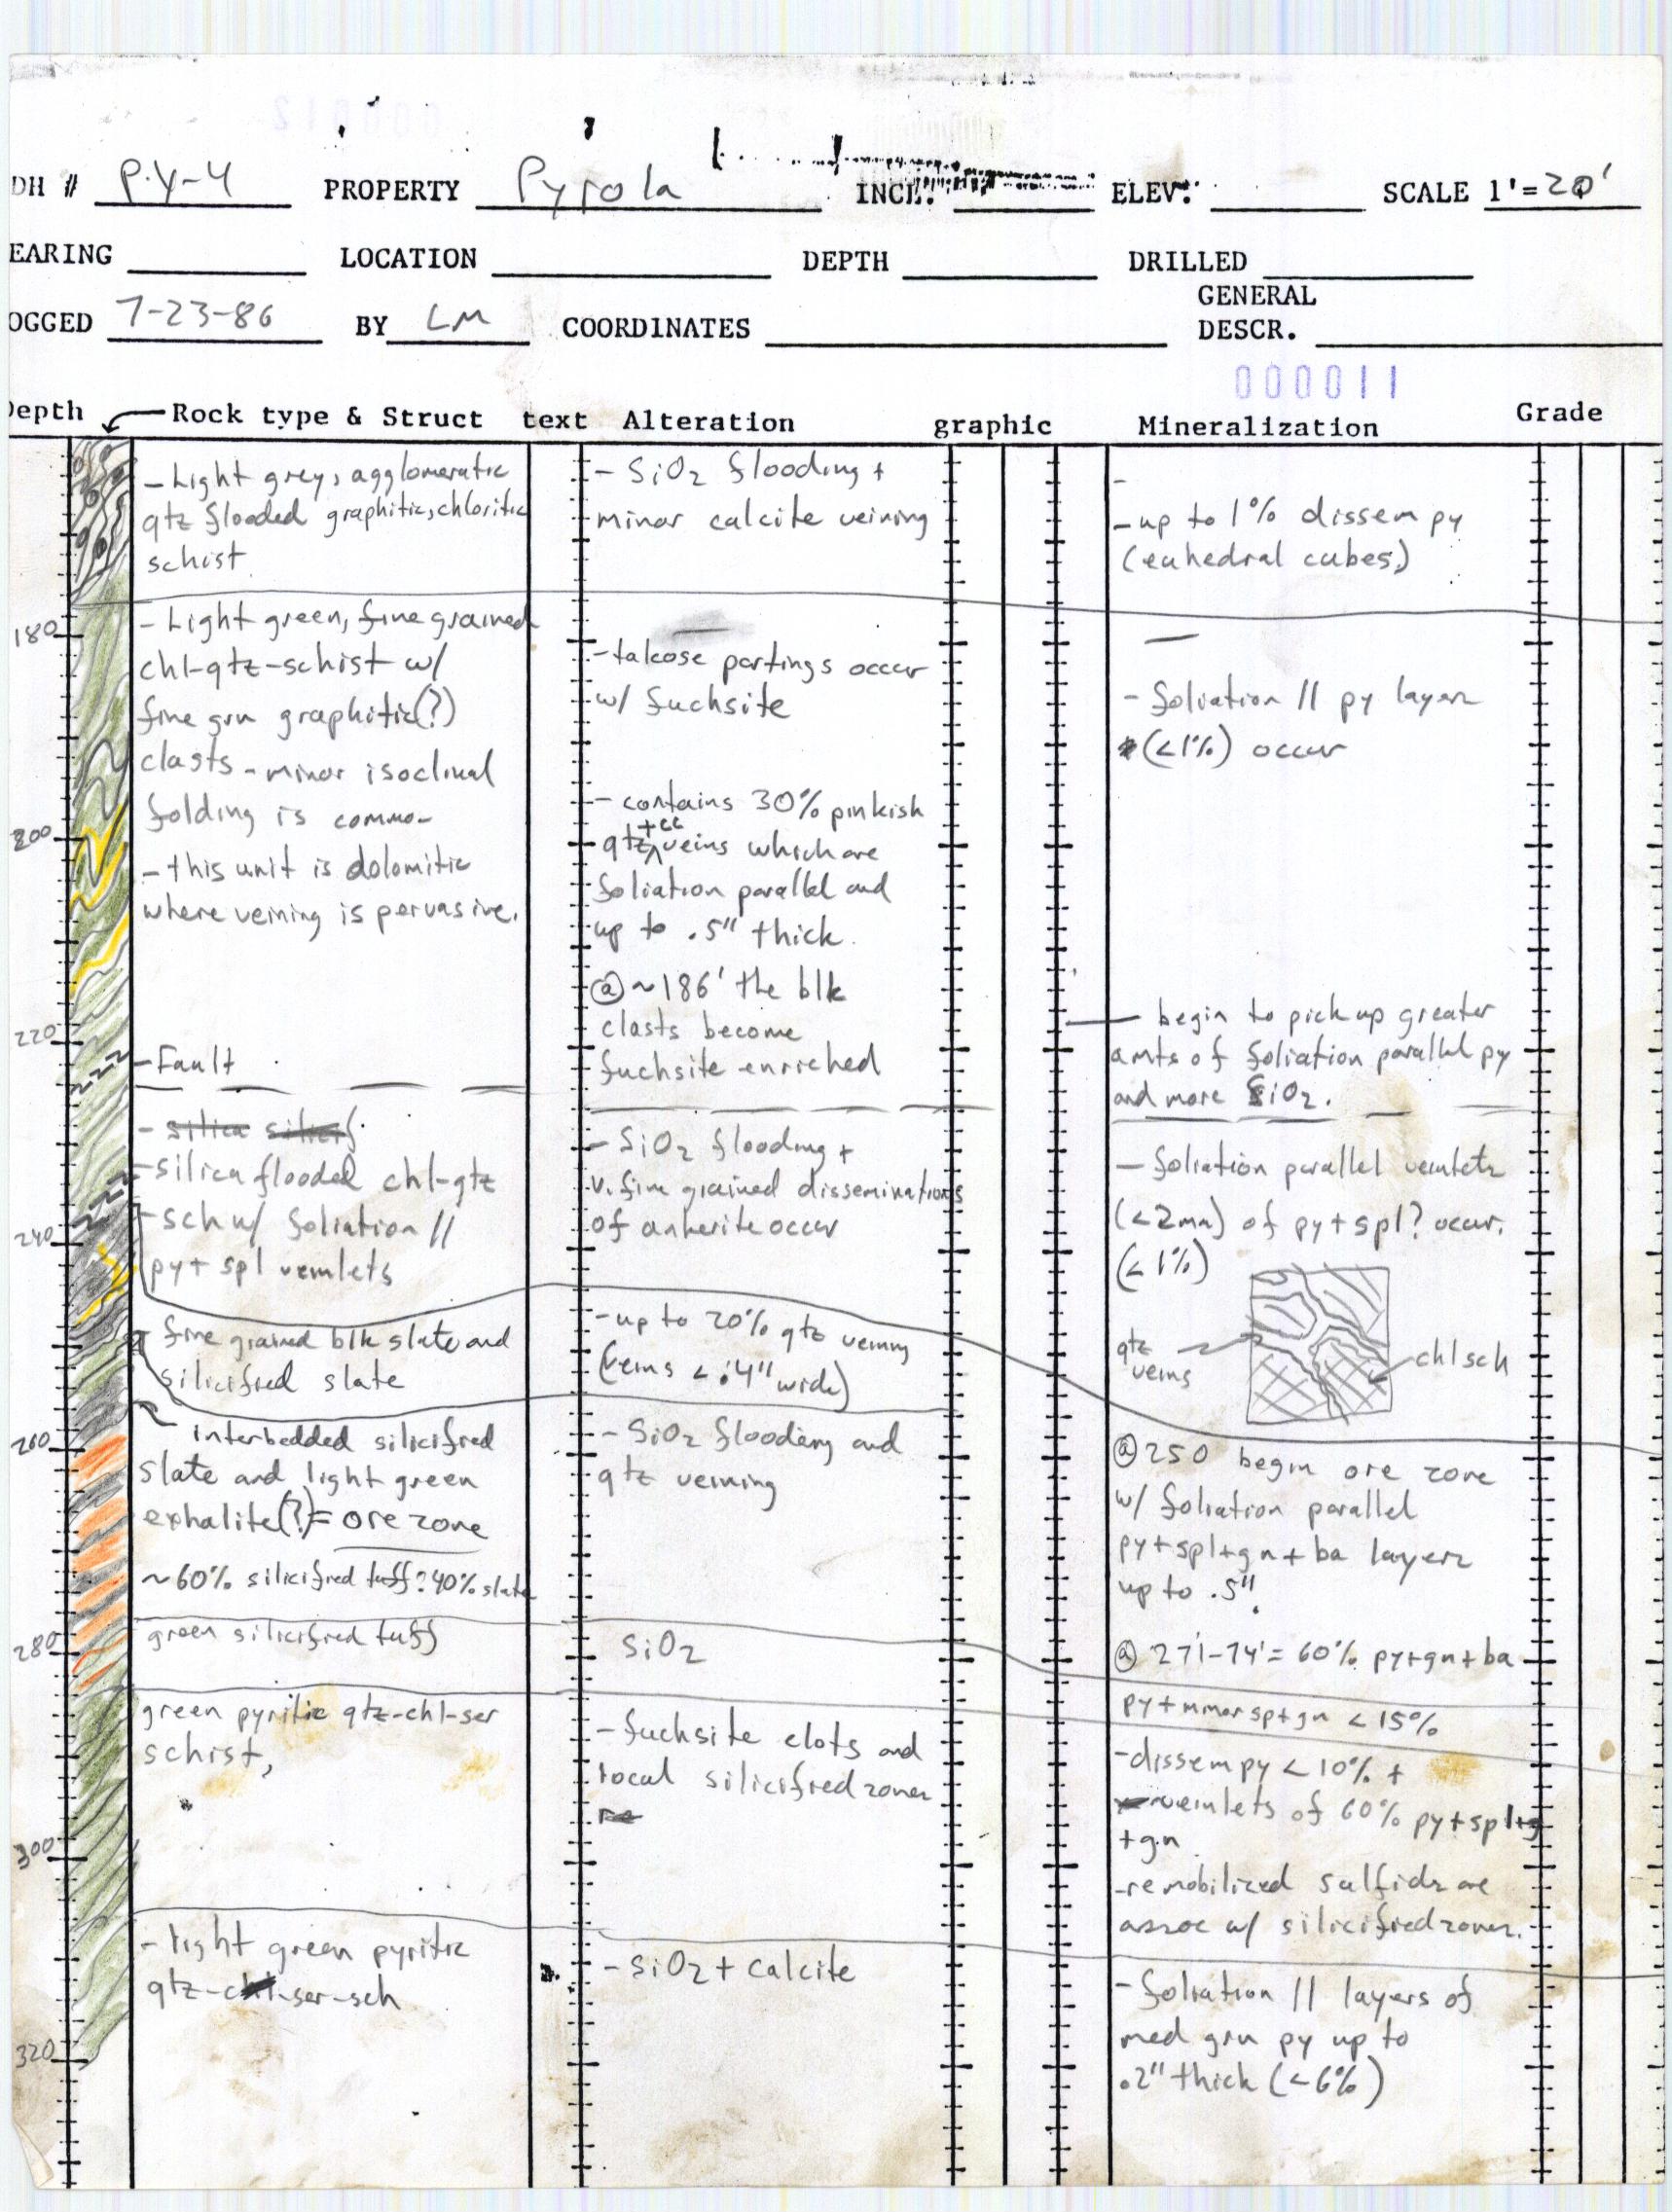 DH # PY-4 PROPERTY Pyrola INCL. ELEV. SCALE 1'=20'
EARING LOCATION DEPTH DRILLED
GENERAL
OGGED 7-23-86 BY LM COORDINATES DESCR.
000011
Depth Rock type & Struct text Alteration graphic Mineralization Grade
- Light grey, agglomeratic
qtz flooded graphitic, chloritic
schist
- Light green, fine grained
chl-qtz-schist w/
fine grn graphitic(?)
clasts - minor isoclinal
folding is common
- this unit is dolomitic
where veining is pervasive.
- Fault
- silica flooded chl-qtz
- sch w/ foliation //
py + spl veinlets
fine grained blk slate and
silicified slate
interbedded silicified
slate and light green
exhalite(?) = ore zone
~60% silicified tuff? 40% slate
green silicified tuff
green pyritic qtz-chl-ser
schist,
- light green pyritic
qtz-chl-ser-sch
- SiO2 flooding +
minor calcite veining
- talcose partings occur
w/ fuchsite
- contains 30% pinkish
qtz +cc veins which are
foliation parallel and
up to .5" thick.
@ ~186' the blk
clasts become
fuchsite enriched
- SiO2 flooding +
v. fine grained disseminations
of ankerite occur
- up to 20% qtz veining
(veins < .4" wide)
- SiO2 flooding and
qtz veining
SiO2
- fuchsite clots and
local silicified zones
- SiO2 + calcite
-
- up to 1% dissem py
(euhedral cubes)
- foliation // py layers
(<1%) occur
- begin to pick up greater
amts of foliation parallel py
and more SiO2.
- foliation parallel veinlets
(<2mm) of py + spl? occur.
(<1%)
qtz
veins
chl sch
@ 250 begin ore zone
w/ foliation parallel
py+spl+gn+ba layers
up to .5".
@ 271-74' = 60% py+gn+ba
py + minor sp+gn < 15%
- dissem py < 10% +
veinlets of 60% py + spl+g
+gn
- remobilized sulfides are
assoc w/ silicified zones.
- foliation // layers of
med grn py up to
.2" thick (<6%)
180
200
220
240
260
280
300
320